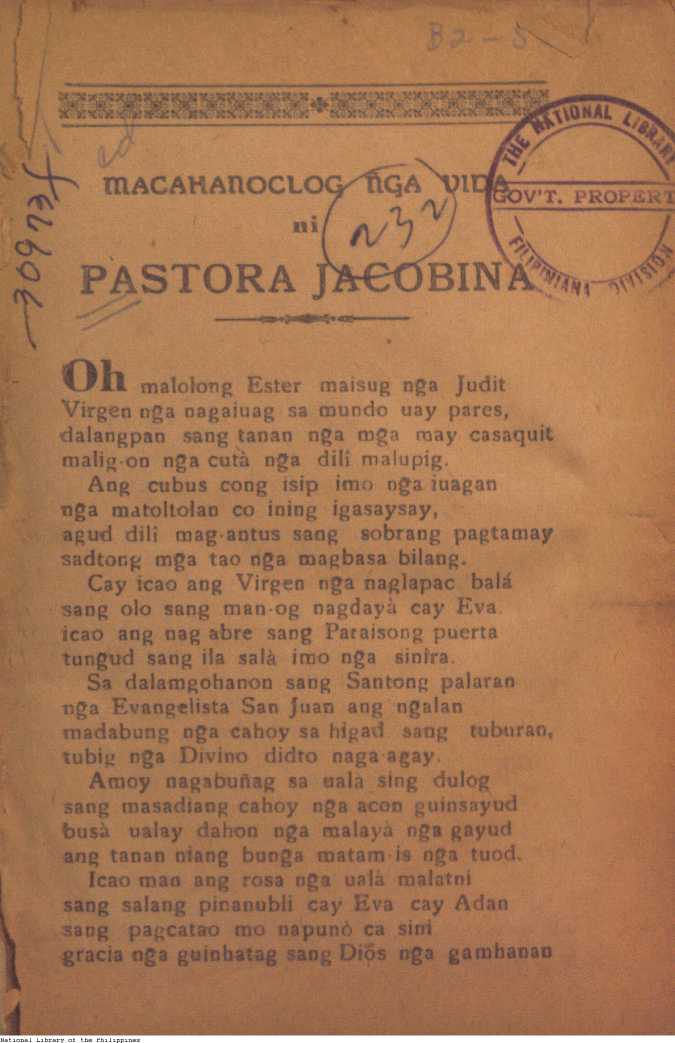 B2-5
THE NATIONAL LIBRARY
GOV'T. PROPERT
FILIPINIANA DIVISION
MACAHANOCLOG ñGA VIDA
ni
232
PASTORA JACOBINA
Oh malolong Ester maisug ng̃a Judit
Virgen ng̃a nagaiuag sa mundo uay pares,
dalangpan sang tanan ng̃a mg̃a may casaquit
malig-on ng̃a cutà ng̃a dilî malupig.
Ang cubus cong isip imo ng̃a iuagan
ng̃a matoltolan co ining igasaysay,
agud dilî mag-antus sang sobrang pagtamay
sadtong mg̃a tao ng̃a magbasa bilang.
Cay icao ang Virgen ng̃a naglapac balá
sang olo sang man-og nagdayà cay Eva.
icao ang nag abre sang Paraisong puerta
tung̃ud sang ila salà imo ng̃a sinira.
Sa dalamgohanon sang Santong palaran
ng̃a Evangelista San Juan ang ng̃alan
madabung ng̃a cahoy sa higad sang tuburan,
tubig ng̃a Divino didto naga-agay.
Amoy nagabuñag sa ualà sing dulog
sang masadiang cahoy ng̃a acon guinsayud
busà ualay dahon ng̃a malayà ng̃a gayud
ang tanan niang bung̃a matam-is ng̃a tuod.
Icao man ang rosa ng̃a ualà malatni
sang salang pinanubli cay Eva cay Adan
sang pagcatao mo napunò ca sini
gracia ng̃a guinhatag sang Diõs ng̃a gamhanan
National Library of the Philippines